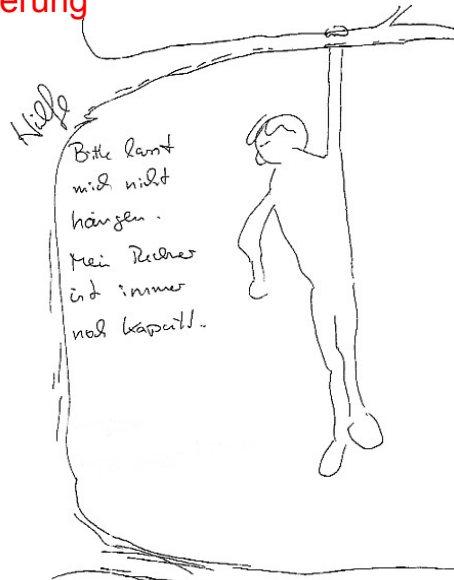 erung
Hilfe
Bitte lasst
mich nicht
hängen.
Mein Rechner
ist immer
noch kaputt.